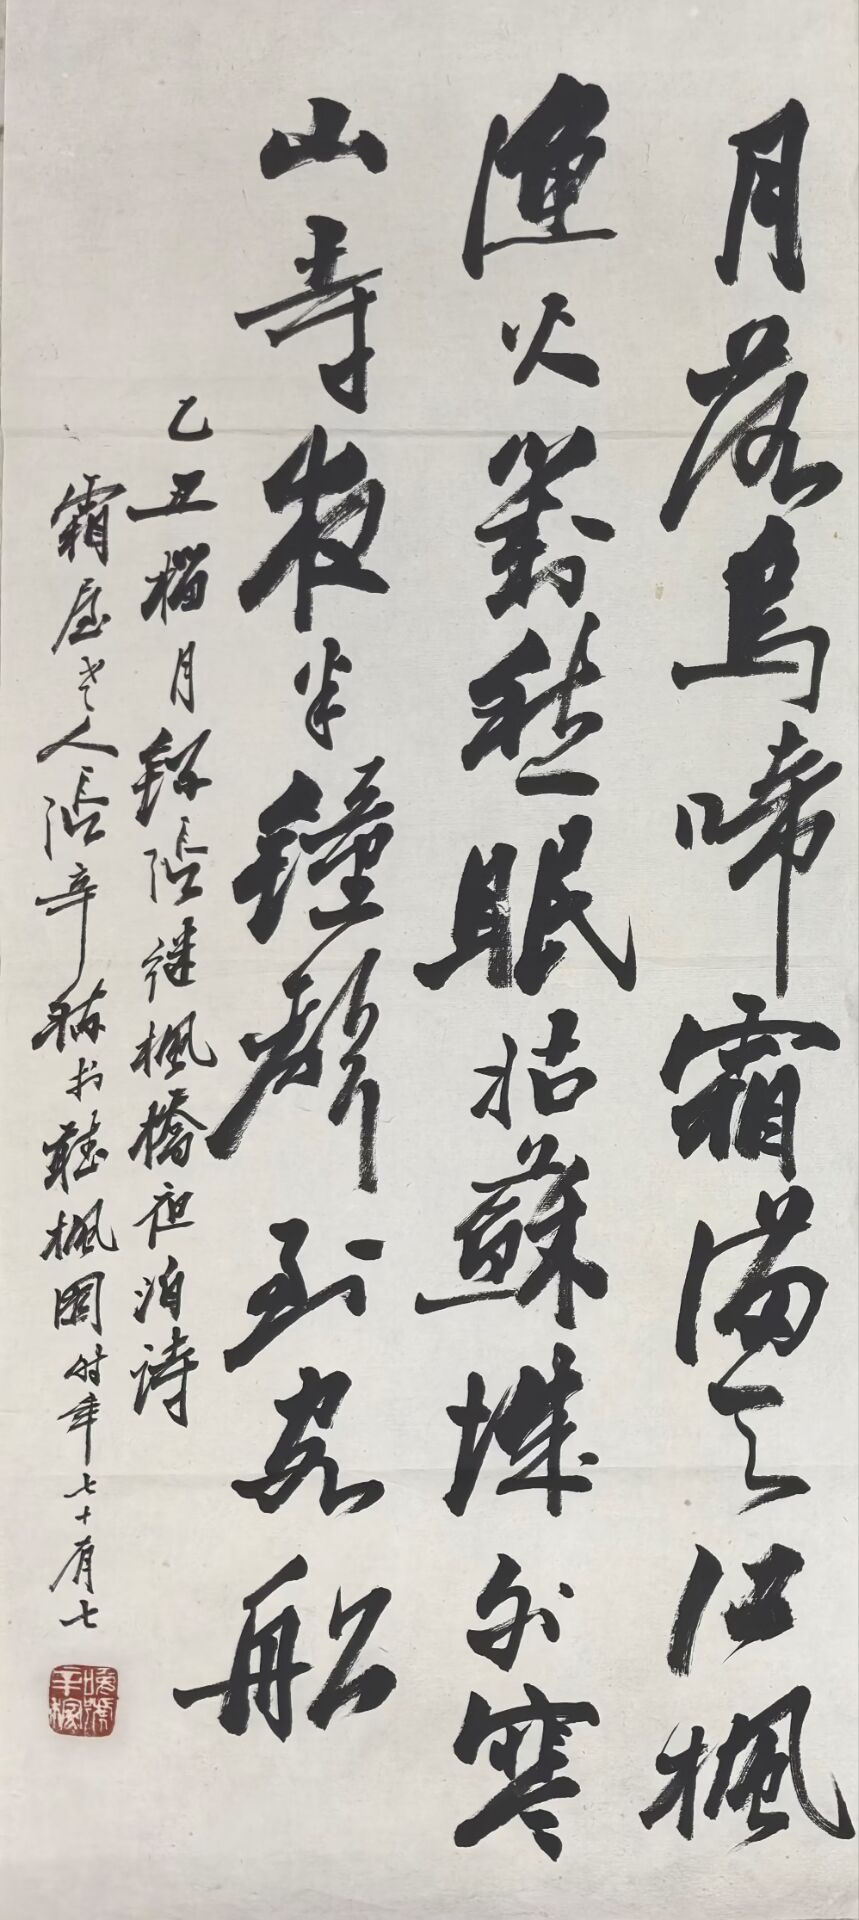 月落烏啼霜滿天江楓
漁火對愁眠姑蘇城外寒
山寺夜半鐘聲到客船
乙丑榴月錄張繼楓橋夜泊詩
霜屋老人張辛稼於聽楓園時年七十有七